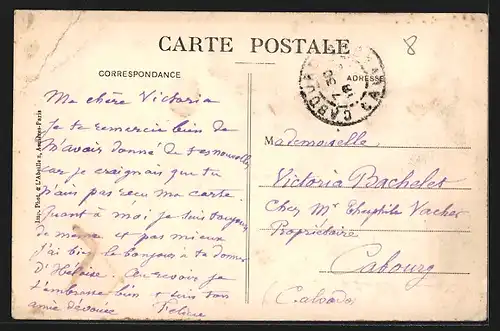 CARTE POSTALE
8
CORRESPONDANCE
ADRESSE
CABOURG
Ma chère Victoria
Je te remercie bien de
m'avoir donné de tes nouvelles
car je craignais que tu
n'ais pas recu ma carte
quant à moi je suis toujours
de meme et pas mieux
j'ai bien le bonjour à te donner
D'Héloïse. Au revoir je
t'embrasse bien suis ton
amie dévouée
Mademoiselle
Victoria Bachelet
Chez Mr Théophile Vacher
Propriétaire
Cabourg
Calvados
Imp. Phot. « L'Abeille », Asnières-Paris